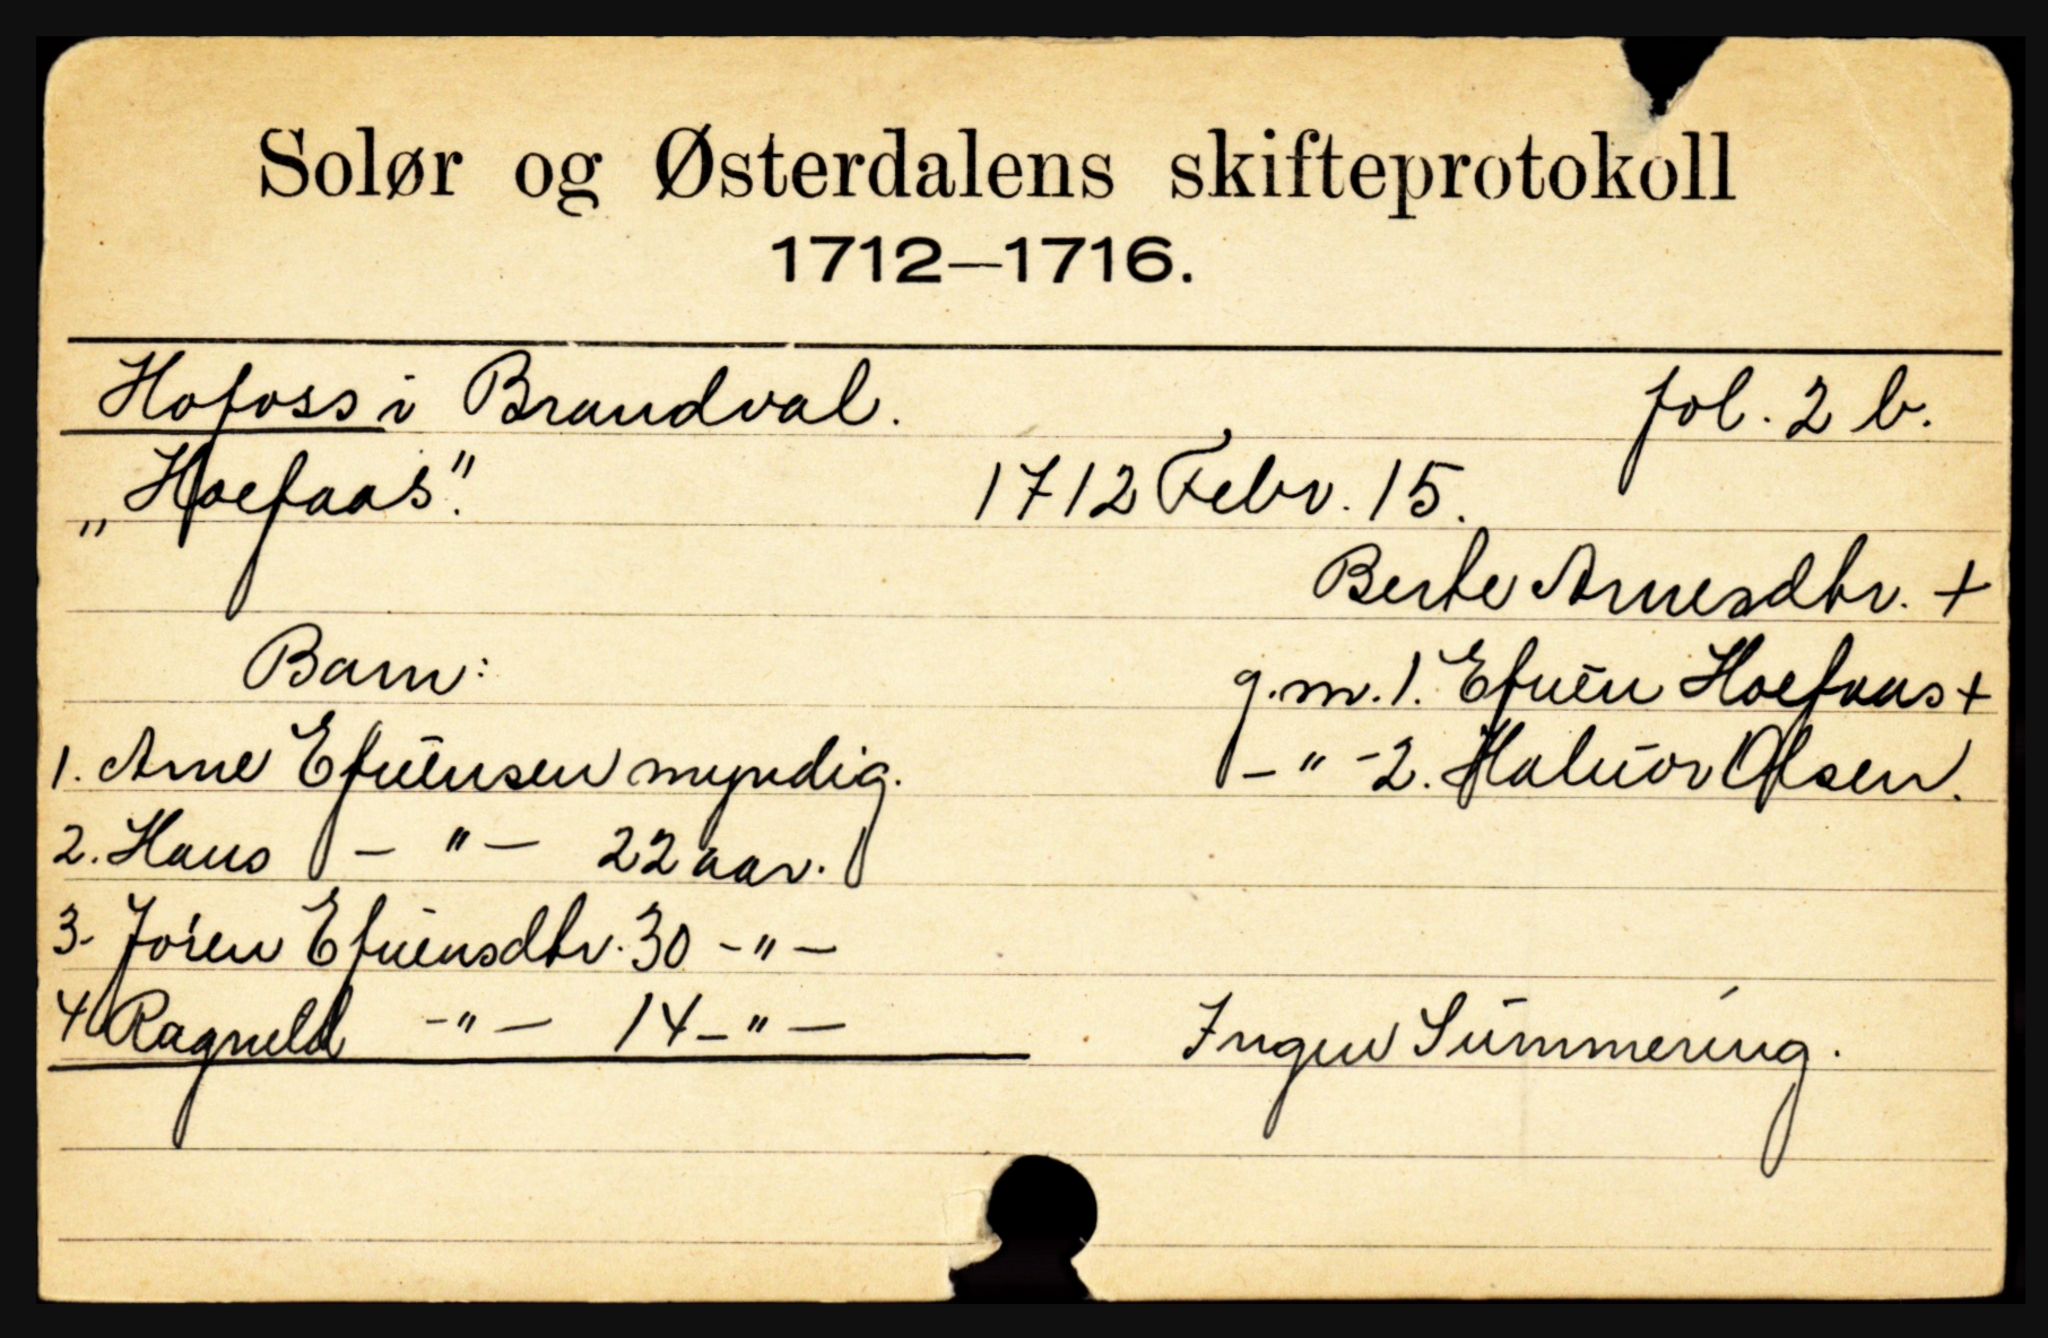 Solør og Østerdalens skifteprotokoll
1712—1716.
Hofoss i Brandval. fol. 2 b.
„Hoefaas". 1712 Febr. 15.
Berte Arnesdtr. +
Barn: g.m. 1. Efuen Hoefaas +
1. Arne Efuensen myndig. – " – 2. Haluor Olsen.
2. Hans – " – 22 aar.
3. Jören Efuensdtr. 30 – " –
4. Ragneld – " – 14 – " – Ingen Summering.